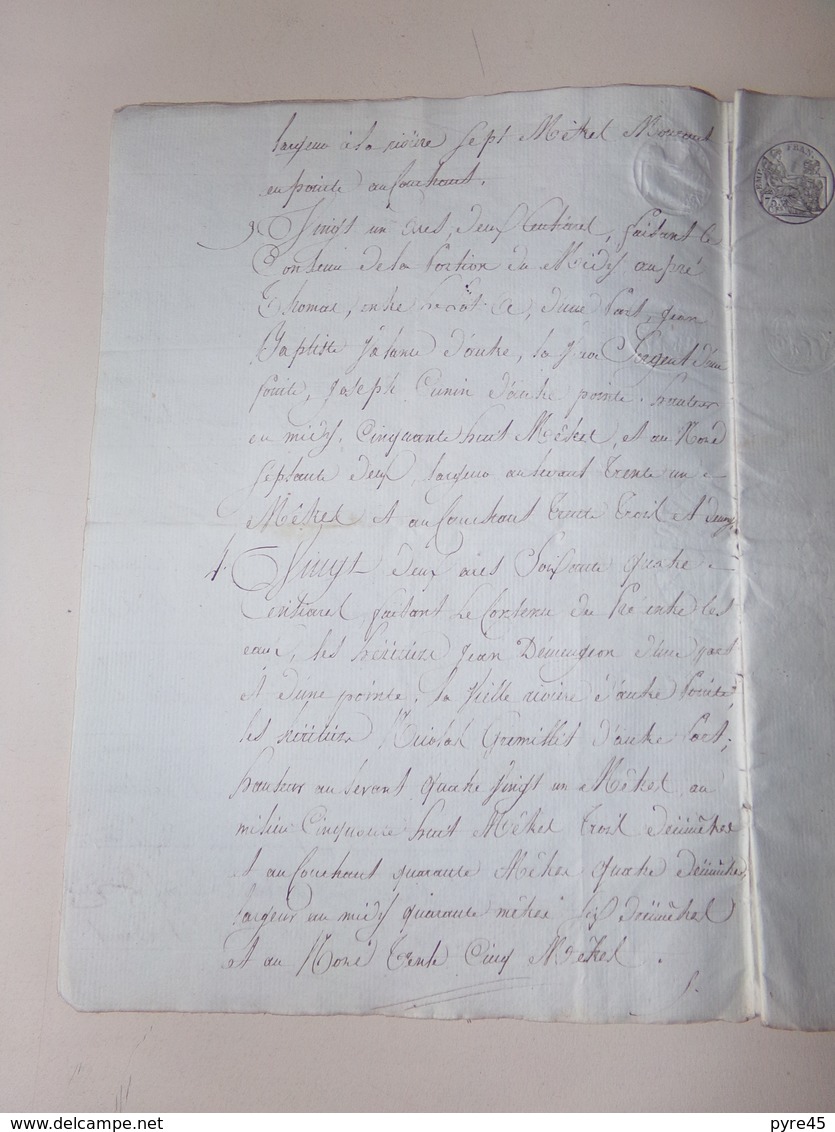 largeur à la rivière sept Mêtres Mourant
en pointe au Couchant.
Vingt un ares, deux Centiares, faisant le
Contenu de la Portion du Midy au pré
Thomas, entre d'une Part, Jean
Baptiste d'autre, la Sergent d'une
pointe, Joseph Cunin d'autre pointe. hauteur
au midy, Cinquante huit Mêtres, et au Nord
septante deux, largeur au levant trente un
Mêtres et au Couchant trente trois et demy.
4. Vingt deux ares Soixante quatre
Centiares, faisant le Contenu du Pré entre les
eaux, les héritiers Jean Démengeon d'une part
et d'une pointe, la vielle rivière d'autre Pointe,
les héritiers Nicolas Gremillet d'autre Part;
hauteur au levant quatre Vingt un Mêtres, au
milieu Cinquante huit Mêtres trois décimêtres
et au Couchant quarante Mêtres quatre décimêtres,
largeur au midy quarante mêtres six décimêtres
et au Nord trente Cinq Mêtres.
Delcampe.net
pyre45